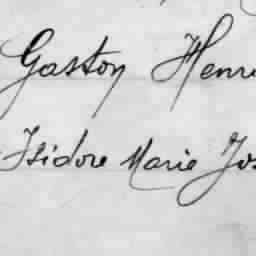 Gaston Henri
Isidore Marie Jos